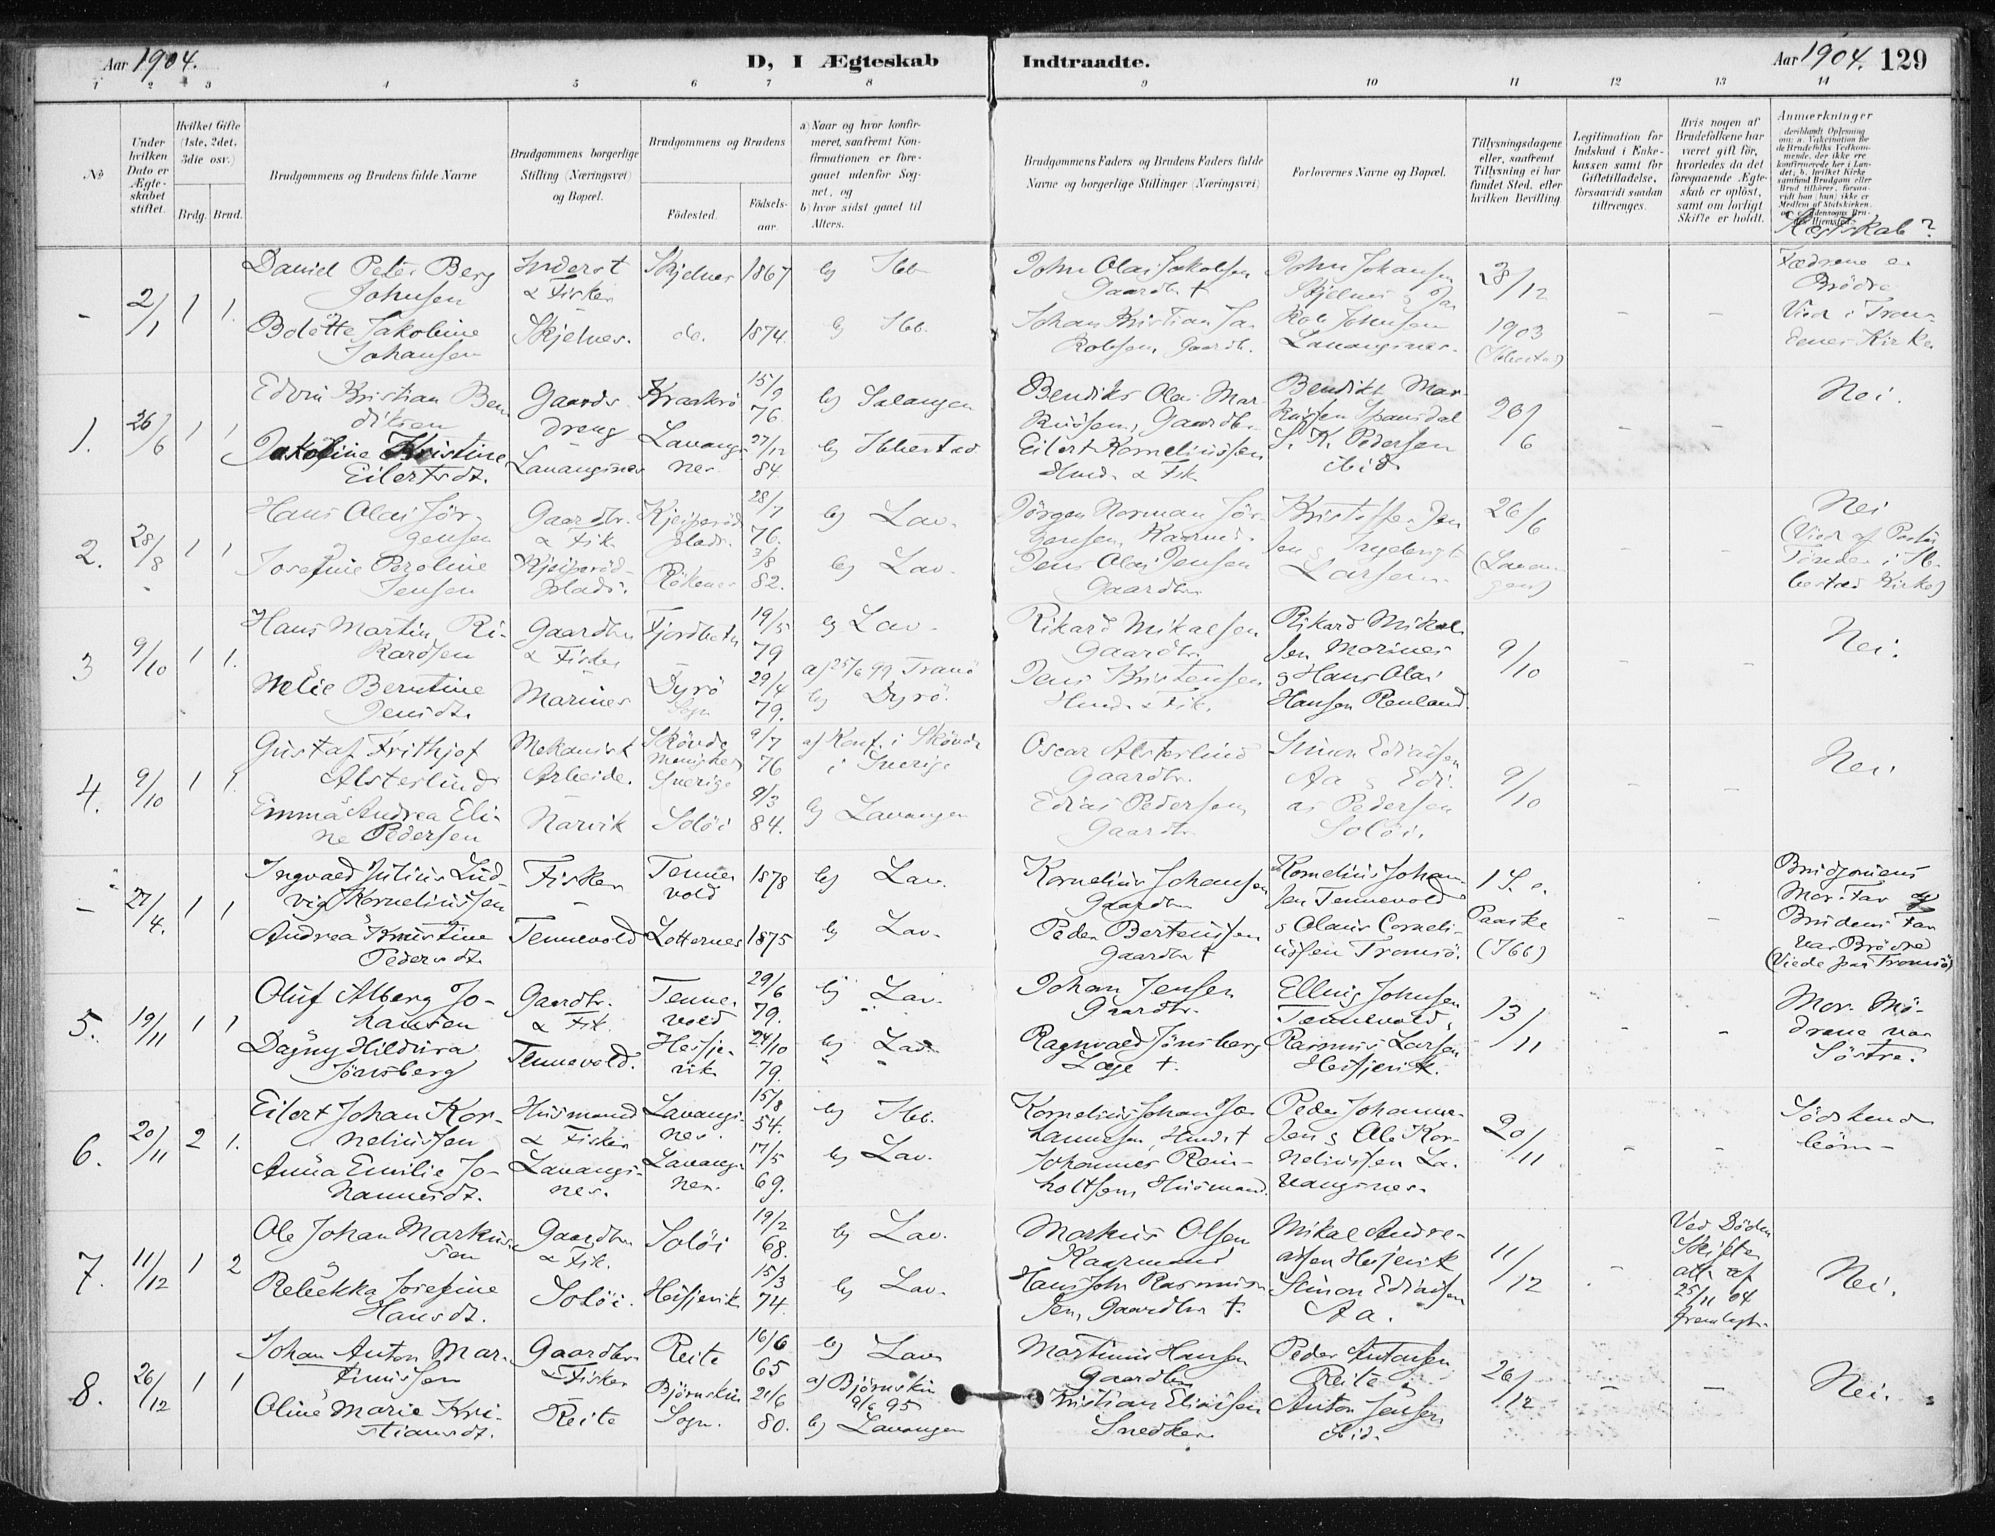 Aar 1904.
D, I Ægteskab Indtraadte.
Aar 1904. 129
1 2 3 4 5 6 7 8 9 10 11 12 13 14
No
Under hvilken Dato er Ægteskabet stiftet.
Hvilket Gifte (1ste, 2det, 3die osv.)
Brdg. Brud.
Brudgommens og Brudens fulde Navne
Brudgommens borgerlige Stilling (Næringsvei) og Bopæl.
Brudgommens og Brudens
Födested.
Födsels-aar.
a) Naar og hvor konfirmeret, saafremt Konfirmationen er foregaaet udenfor Sognet, og
b) hvor sidst gaaet til Alters.
Brudgommens Faders og Brudens Faders fulde Navne og borgerlige Stillinger (Næringsvei)
Forlovernes Navne og Bopæl.
Tillysningsdagene eller, saafremt Tillysning ei har fundet Sted, efter hvilken Bevilling.
Legitimation for Indskud i Enkekassen samt for Giftetilladelse, forsaavidt saadan tiltrænges.
Hvis nogen af Brudefolkene har været gift för, hvorledes da det foregaaende Ægteskab er oplöst, samt om lovligt Skifte er holdt.
Anmærkninger
Slæktskab?
- 2/1 1 1.
Daniel Peter Berg Johnsen
Inderst & Fisker
Skjelnes 1867 b) Ibb
John Olai Jakobsen Gaardbr †
John Johansen Skjelnes & Ja-
28/12
Fædrene er Brödre
Bolette Jakobine Johansen
Skjelnes. do. 1874. b) Ibb.
Johan Kristian Jakobsen, Gaardb.
kob Johnsen Lavangsnes.
1903 (Ibbestad)
Vied i Tranöenes Kirke
1. 26/6 1 1
Edvin Kristian Bendiksen
Gaardsdreng
Kraakrö 15/9 76. b) Salangen
Bendiks Olai Markusen, Gaardbr.
Bendikt Markusen Spansdal
26/6
Nei.
Jakobine Kristine Eilertsdt.
Lavangsnes
Lavangsnes 27/12 84. b) Ibbestad
Eilert Korneliussen Husm. & Fisk
S. K. Pedersen ibid
2. 28/8 1 1
Hans Olai Jörgensen
Gaardbr. & Fisk
28/7 76. b) Lav.
Jörgen Norman Jörgensen, Kaarmd.
Kristoffer Jensen & Ingebrigt Larsen.
26/6 (Lavangen)
Nei (Vied af Pastor Tönder i Ibbestad Kirke)
Josefine Peroline Jensen
Rökenes 3/8 82. b) Lav.
Jens Olai Jensen Gaardbr
3 9/10 1 1.
Hans Martin Rikardsen
Gaardbr & Fisker
Fjordbotn 19/5 79 b) Lav.
Rikard Mikalsen Gaardbr.
Rikard Mikalsen Marines
9/10
Nei.
Melie Berntine Jensdt.
Marines
Dyrö Sogn 29/4 79. a) 25/6 99 Tranö b) Dyrö.
Jens Kristensen Husm. & Fisk.
& Hans Olai Hansen Renland.
4. 9/10 1 1.
Gustaf Frithjof Alsterlund
Mekanisk Arbeide.
Skövde Menighed Sverige 9/7 76 a) Konf. i Skövde i Sverige
Oscar Alsterlund Gaardbr.
Simon Ediassen Aa & Edi-
9/10
Nei
Emma Andrea Eline Pedersen
Narvik
Solöi 9/3 84. b) Lavangen
Edias Pedersen Gaardbr.
as Pedersen Solöi.
- 27/4. 1 1
Ingvald Julius Ludvig Korneliussen
Fisker
Tennevold 1878 b) Lav.
Kornelius Johansen Gaardbr
Kornelius Johansen Tennevold
1 S. e. Paaske (Ibb)
Brudgomens Mor-Far og Brudens Far var Brödre (Viede paa Tromsö)
Andrea Kristine Pedersdt.
Tennevold
Lotternes 1875 b) Lav.
Peder Bertenssen Gaardbr †
& Olaus Corneliussen Tromsö.
5. 19/11 1 1
Oluf Alberg Johansen
Gaardbr. & Fisk.
Tennevold 29/6 79. b) Lav.
Johan Jensen Gaardbr.
Elling Johnsen Tennevold,
13/11
Mor-Mödrene var Söstre.
Dagny Hildura Jönsberg
Tennevold.
Hesjevik 24/10 79. b) Lav
Ragnvald Jönsberg Læge †.
Rasmus Larsen Hesjevik.
6. 20/11 2 1.
Eilert Johan Korneliussen
Husmand & Fisker
Lavangsnes. 15/8 54. b) Ibb.
Kornelius Johan Johannesen, Husm †
Peder Johannesen & Ole Kor-
20/11
Södskendebörn-
Anna Emilie Johannesdt.
Lavangsnes.
Lavangsnes. 17/5 69. b) Lav.
Johannes Reinholtsen, Husmand.
neliussen Lavangsnes.
7. 11/12 1 2
Ole Johan Markussen
Gaardbr & Fisk.
Solöi 19/2 68. b) Lav.
Markus Olsen Kaarmand
Mikal Andreassen Hesjevik
11/12
Ved Döden Skifte att. af 25/11 04 fremlagt.
Nei.
Rebekka Josefine Hansdt.
Solöi.
Hesjevik 15/3 74. b) Lav.
Hans John Rasmussen, Gaardbr †.
Simon Ediassen Aa.
8. 26/12 1 1
Johan Anton Martinussen
Gaardbr. & Fisker
Reite 16/6 65 b) Lav
Martinus Hansen Gaardbr
Peder Antonsen Reite,
26/12
Nei.
Oline Marie Kristiansdt.
Reite
Björnskin Sogn. 21/6 80. a) Björnskin 9/6 95 b) Lavangen
Kristian Eliassen Snedker
Anton Jensen ibid.